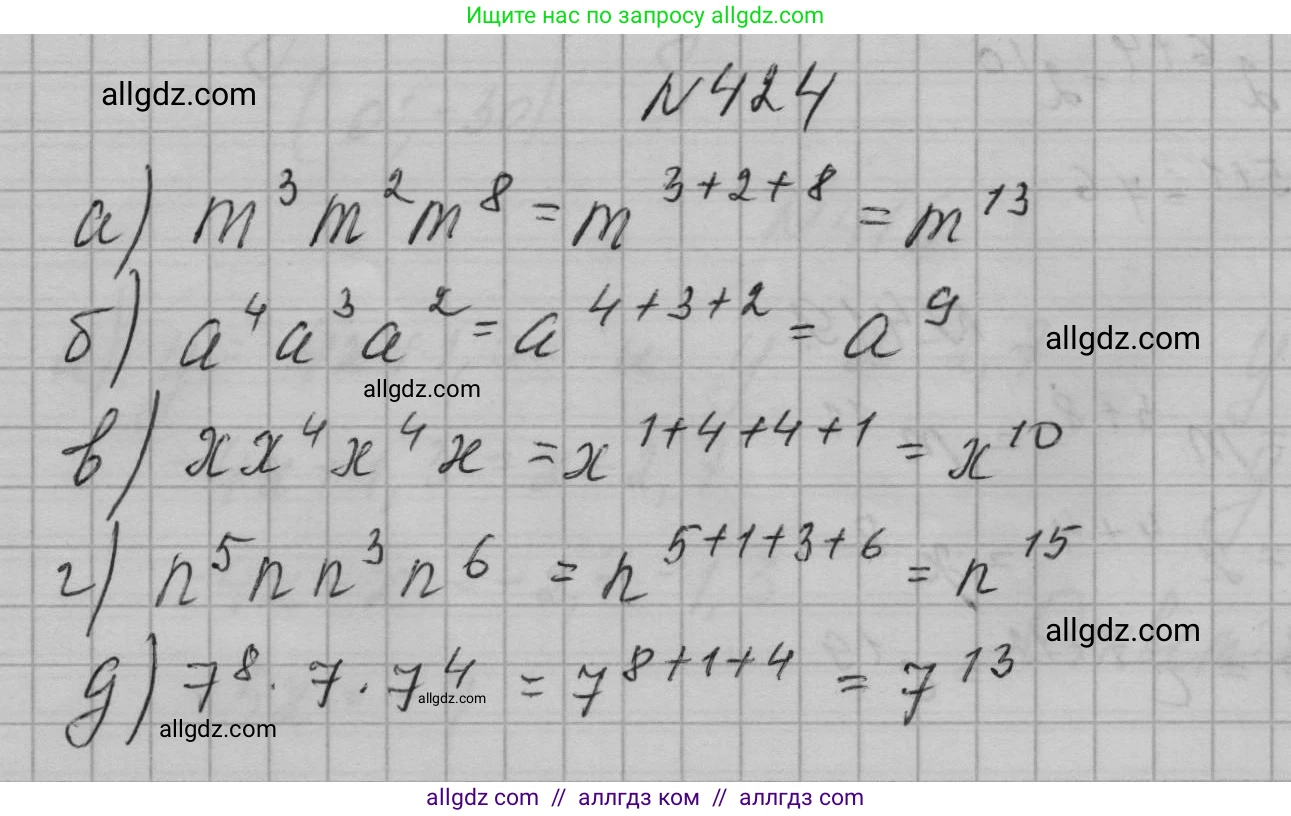 Ищите нас по запросу allgdz.com
allgdz.com
N 424
а) m³ m² m⁸ = m³⁺²⁺⁸ = m¹³
б) a⁴ a³ a² = a⁴⁺³⁺² = a⁹
allgdz.com
allgdz.com
в) x x⁴ x⁴ x = x¹⁺⁴⁺⁴⁺¹ = x¹⁰
г) n⁵ n n³ n⁶ = n⁵⁺¹⁺³⁺⁶ = n¹⁵
allgdz.com
д) 7⁸ · 7 · 7⁴ = 7⁸⁺¹⁺⁴ = 7¹³
allgdz.com
allgdz.com
allgdz com // аллгдз ком // аллгдз com